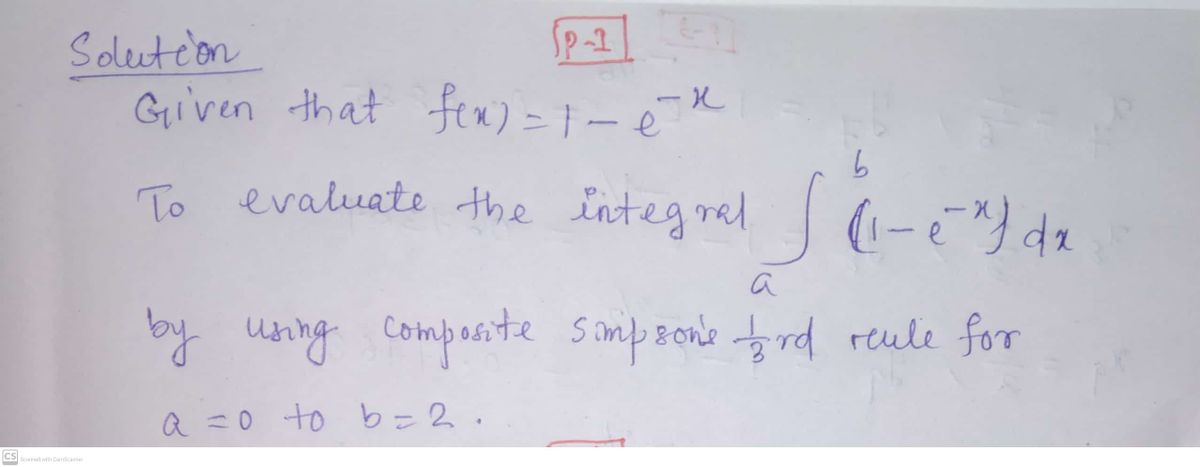 Solution P-1
Given that f(x) = 1 - e^{-x}
To evaluate the integral ∫_a^b (1 - e^{-x}) dx
by using composite Simpson's 1/3 rd rule for
a = 0 to b = 2.
CS Scanned with CamScanner